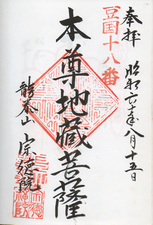 奉拝
昭和六十年八月十五日
豆国十八番
本尊地蔵菩薩
龍泰山
宗徳院